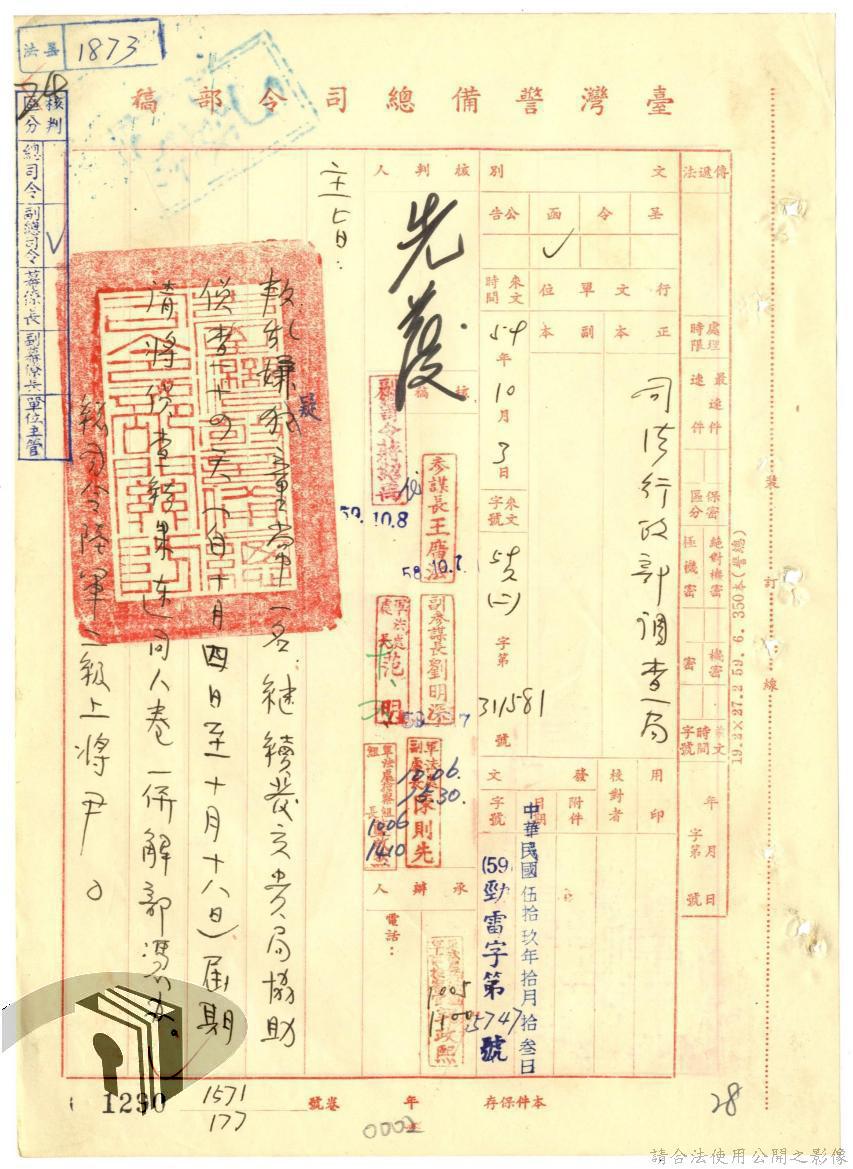 法墨 1873
臺灣警備總司令部稿
核判區分
總司令
副總司令
幕僚長
副幕僚長
單位主管
傳遞法
處理時限
最速件
速件
保密區分
絕對機密
極機密
機密
密
來文時間字號
年 月 日
字第 號
文別
呈
令
函
公告
行文單位
正本
副本
司法行政部調查局
來文時間
54年10月3日
來文字號
字第311581號
用印
校對者
發文
附件
日期
字號
中華民國伍拾玖年拾月拾叁日
(59)勁雷字第5747號
核判人
先發
核稿
59.10.8
參謀長王
58.10.7
副參謀長劉明深
范明
副處長陳則先
1006
1530
1006
1410
承辦人
電話：
1005
1100
主旨：
叛亂嫌疑犯 一名，繼續發交貴局協助
偵查十四天（自十月四日至十月十八日）屆期
請將偵查結果連同人卷一併解部憑辦。
總司令陸軍二級上將尹○○
裝訂線
19.2×27.2 59.6.350本(警總)
本件保存 年
卷號
1290
1571
177
28
請合法使用公開之影像